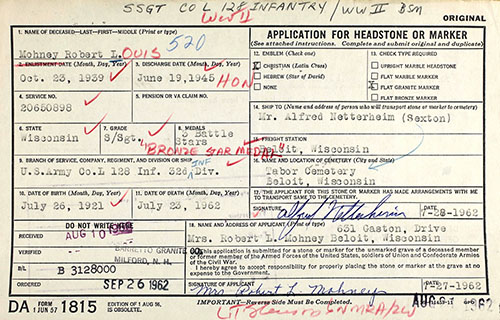 SSGT CO L 128 INFANTRY / WW II BSM
WW II
ORIGINAL
1. NAME OF DECEASED—LAST-FIRST-MIDDLE (Print or type)
Mohney Robert LOUIS 520
APPLICATION FOR HEADSTONE OR MARKER
(See attached instructions. Complete and submit original and duplicate)
2. ENLISTMENT DATE (Month, Day, Year)
Oct. 23, 1939
3. DISCHARGE DATE (Month, Day, Year)
June 19, 1945 HON
12. EMBLEM (Check one)
X CHRISTIAN (Latin Cross)
HEBREW (Star of David)
NONE
13. CHECK TYPE REQUIRED
UPRIGHT MARBLE HEADSTONE
FLAT MARBLE MARKER
X FLAT GRANITE MARKER
FLAT BRONZE MARKER
4. SERVICE NO.
20650898
5. PENSION OR VA CLAIM NO.
14. SHIP TO (Name and address of person who will transport stone or marker to cemetery)
Mr. Alfred Netterheim (Sexton)
6. STATE
Wisconsin
7. GRADE
S/Sgt.
8. MEDALS
3 Battle
Stars
"BRONZE STAR MEDAL"
15. FREIGHT STATION
Beloit, Wisconsin
9. BRANCH OF SERVICE, COMPANY, REGIMENT, AND DIVISION OR SHIP
U.S.Army Co.L 128 Inf. 32d INF Div.
16. NAME AND LOCATION OF CEMETERY (City and State)
Tabor Cemetery
Beloit, Wisconsin
10. DATE OF BIRTH (Month, Day, Year)
July 26, 1921
11. DATE OF DEATH (Month, Day, Year)
July 23, 1962
17. THE APPLICANT FOR THIS STONE OR MARKER HAS MADE ARRANGEMENTS WITH ME TO TRANSPORT SAME TO THE CEMETERY.
SIGNATURE Alfred Netterheim 7-28-1962
DO NOT WRITE HERE
RECEIVED
AUG 10
GRANITE CO
MILFORD, N. H.
B/L
B 3128000
ORDERED
SEP 26 1962
18. NAME AND ADDRESS OF APPLICANT (Print or type) 631 Gaston, Drive
Mrs. Robert L. Mohney Beloit, Wisconsin
This application is submitted for a stone or marker for the unmarked grave of a deceased member or former member of the Armed Forces of the United States, soldiers of the Union and Confederate Armies of the Civil War.
I hereby agree to accept responsibility for properly placing the stone or marker at the grave at no expense to the Government.
SIGNATURE OF APPLICANT DATE
Mrs Robert L. Mohney
DA FORM 1815
1 JUN 57
EDITION OF 1 AUG 56,
IS OBSOLETE.
IMPORTANT—Reverse Side Must Be Completed.